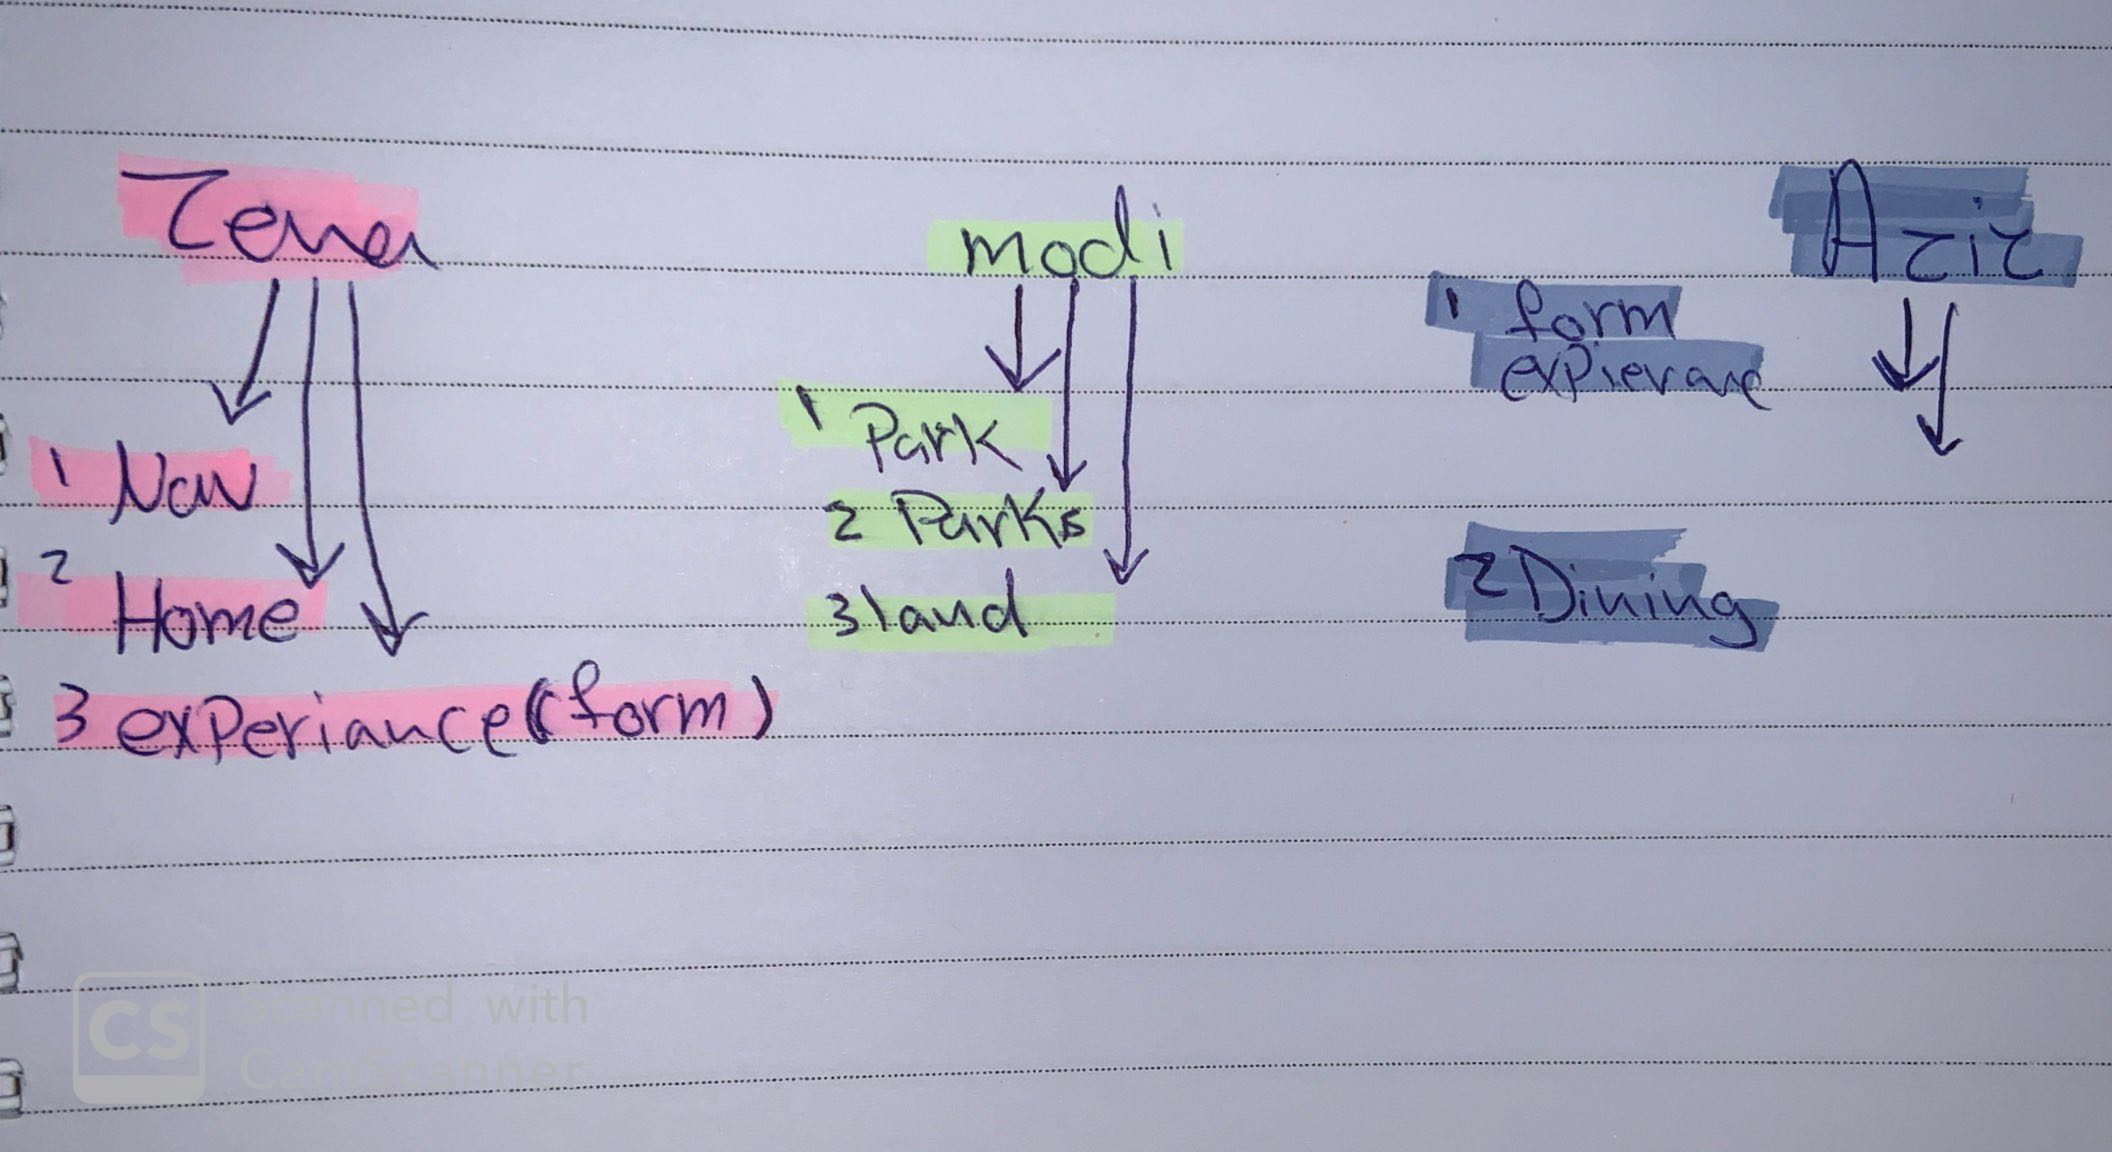 Zena
1 Nav
2 Home
3 experiance (form)
modi
1 Park
2 Parks
3 land
Aziz
1 form
expierance
2 Dining
CS Scanned with
CamScanner